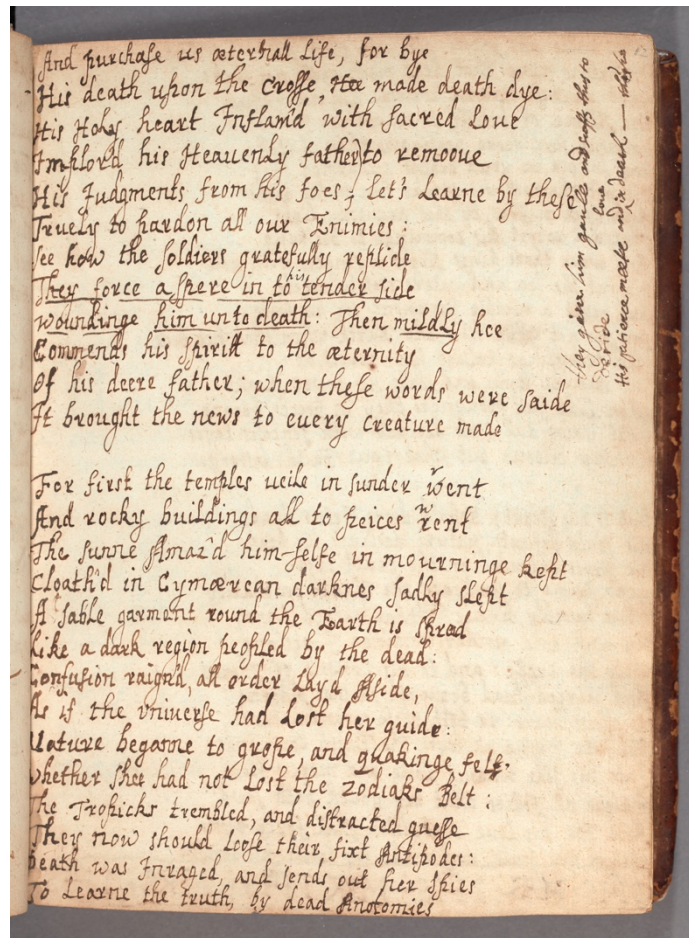 And purchase us æternall Life, for bye
His death upon the Crosse, Hee made death dye:
His Holy heart Inflam'd with sacred Love
Implord his Heavenly father) to remoove
His Judgments from his foes; Let's Learne by these
Truely to pardon all our Enimies:
See how the Soldiers gratefully replide
They force a spere in to his tender side
woundinge him unto death: Then mildly hee
Commends his spiritt to the æternity
Of his deere father; when these words were saide
It brought the news to euery creature made
For first the temples ueile in sunder went
And rocky buildings all to peices rent
The sunne Amaz'd him-selfe in mourninge kept
Cloath'd in Cymærean darknes sadly slept
A sable garment round the Earth is spred
Like a dark region peopled by the dead:
Confusion raign'd, all order Layd Aside,
As if the vniuerse had Lost her guide:
Nature beganne to grope, and quakinge felt,
whether shee had not Lost the Zodiaks Belt:
The Tropicks trembled, and distracted guesse
They now should Loose their fixt Antipodes:
Death was Inraged, and sends out her spies
To Learne the truth, by dead Anotomies
they giue him gaulle and
deride
loue
His patience